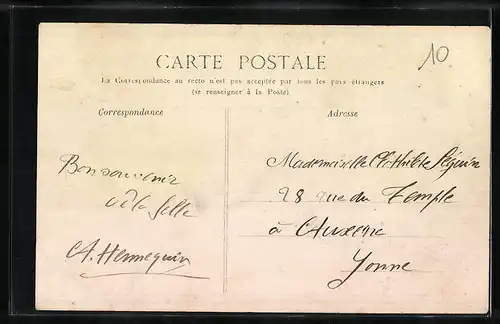 10
CARTE POSTALE
La Correspondance au recto n'est pas acceptée par tous les pays étrangers
(se renseigner à la Poste)
Correspondance
Adresse
Bon souvenir
A. Hennequin
Mademoiselle Clothilde Séguin
28 rue du Temple
à Auxerre
Yonne